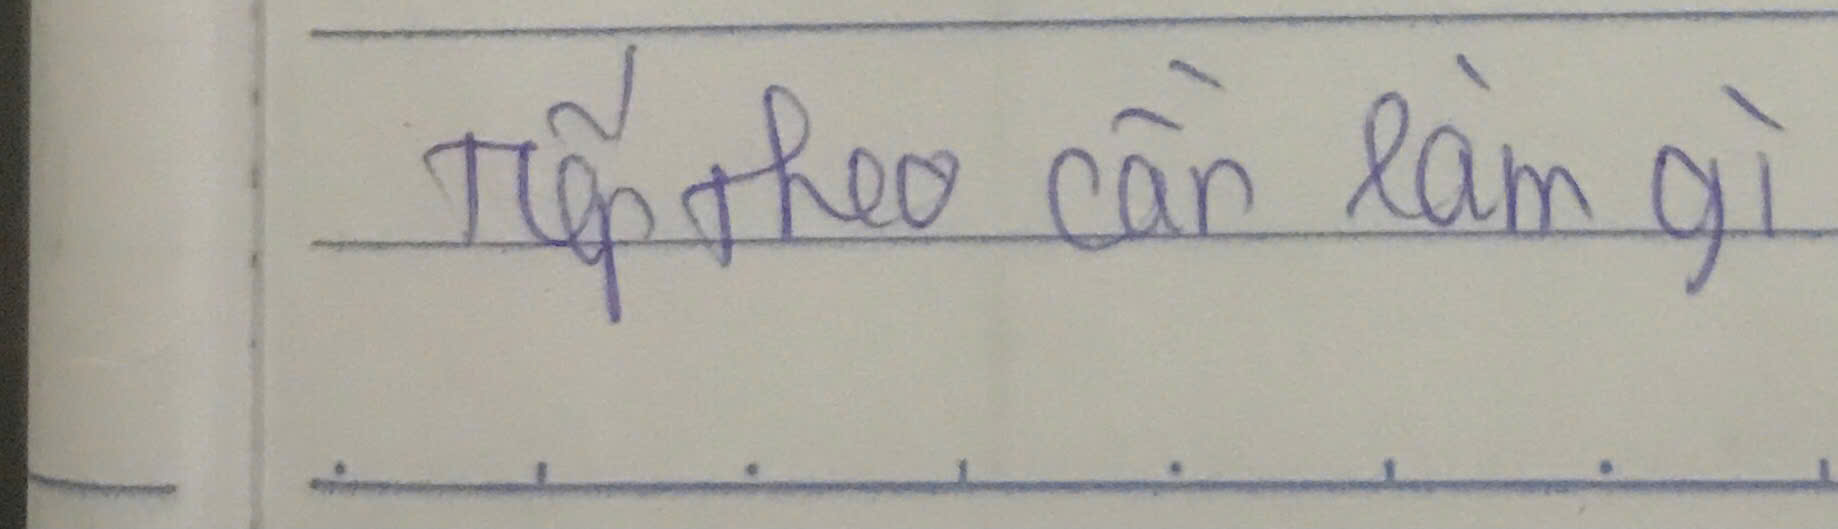 Tiếp theo cần làm gì